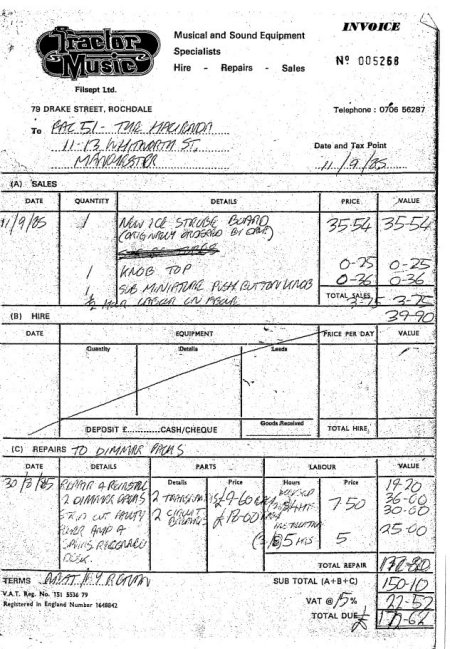 Tractor Music
Filsept Ltd.
Musical and Sound Equipment
Specialists
Hire - Repairs - Sales
INVOICE
Nº 005268
79 DRAKE STREET, ROCHDALE
Telephone : 0706 56287
To FAC 51 - THE HACIENDA
11-13 WHITWORTH ST.
MANCHESTER
Date and Tax Point
11/9/85
(A) SALES
DATE QUANTITY DETAILS PRICE VALUE
11/9/85 1 NEW ICE STROBE BOARD 35-54 35-54
(ORIGINALLY ORDERED BY
1 KNOB TOP 0-25 0-25
1 SUB MINIATURE PUSH BUTTON KNOB 0-36 0-36
½ HOUR LABOUR ON ABOVE 3-75 3-75
TOTAL SALES 39-90
(B) HIRE
DATE EQUIPMENT PRICE PER DAY VALUE
Quantity Details Leads
DEPOSIT £............CASH/CHEQUE Goods Received TOTAL HIRE
(C) REPAIRS TO DIMMER PACKS
DATE DETAILS PARTS LABOUR VALUE
Details Price Hours Price
REPAIR & 2 £9-60 7 50 19-20
2 DIMMER PACKS 2 CIRCUIT £18-00 36-00
OUT FAULTY 30-00
POWER AMP & 5 HRS 5 25-00
DESK.
TOTAL REPAIR
TERMS
V.A.T. Reg. No. 151 5536 79
Registered in England Number 1648842
SUB TOTAL (A+B+C) 150-10
VAT @ 15% 22-52
TOTAL DUE £ 172-62